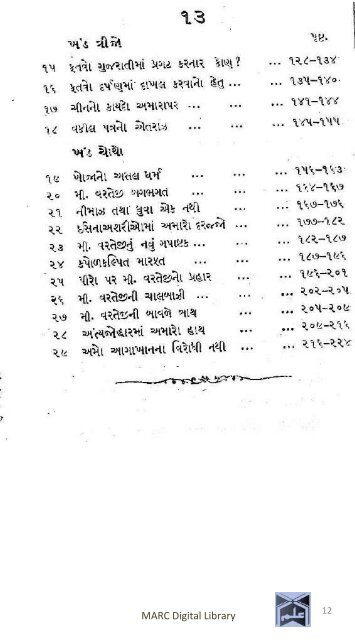 ૧૩
ખંડ ત્રીજો પૃષ્ઠ.
૧૫ ફતવો ગુજરાતીમાં પ્રગટ કરનાર કોણ? ... ૧૨૮-૧૩૪
૧૬ ફતવો દર્પણમાં દાખલ કરવાનો હેતુ ... ... ૧૩૫-૧૪૦
૧૭ ચીનનો કાયદો અમારાપર ... ... ... ૧૪૧-૧૪૪
૧૮ વકીલ પત્રનો એતરાઝ ... ... ... ૧૪૫-૧૫૫
ખંડ ચોથો
૧૯ ખોજાનો અસલ ધર્મ ... ... ... ૧૫૬-૧૬૩
૨૦ મી. વરતેજી બગભગત ... ... ... ૧૬૪-૧૬૭
૨૧ નીમાઝ તથા દુવા એક નથી ... ... ૧૬૭-૧૭૬
૨૨ ઇસનાઅશરીઓમાં અમારો દરજ્જો ... ... ૧૭૭-૧૮૨
૨૩ મી. વરતેજીનું નવું ગપાષ્ટક ... ... ... ૧૮૨-૧૮૭
૨૪ કપોળકલ્પિત મારફત ... ... ... ૧૮૭-૧૯૬
૨૫ પીરો પર મી. વરતેજીનો પ્રહાર ... ... ૧૯૬-૨૦૧
૨૬ મી. વરતેજીની ચાલબાજી ... ... ... ૨૦૨-૨૦૫
૨૭ મી. વરતેજીની બાવળે બાથ ... ... ૨૦૫-૨૦૯
૨૮ અંત્યજોદ્ધારમાં અમારો હાથ ... ... ૨૦૯-૨૧૬
૨૯ અમો આગાખાનના વિરોધી નથી ... ... ૨૧૬-૨૨૪
MARC Digital Library
12